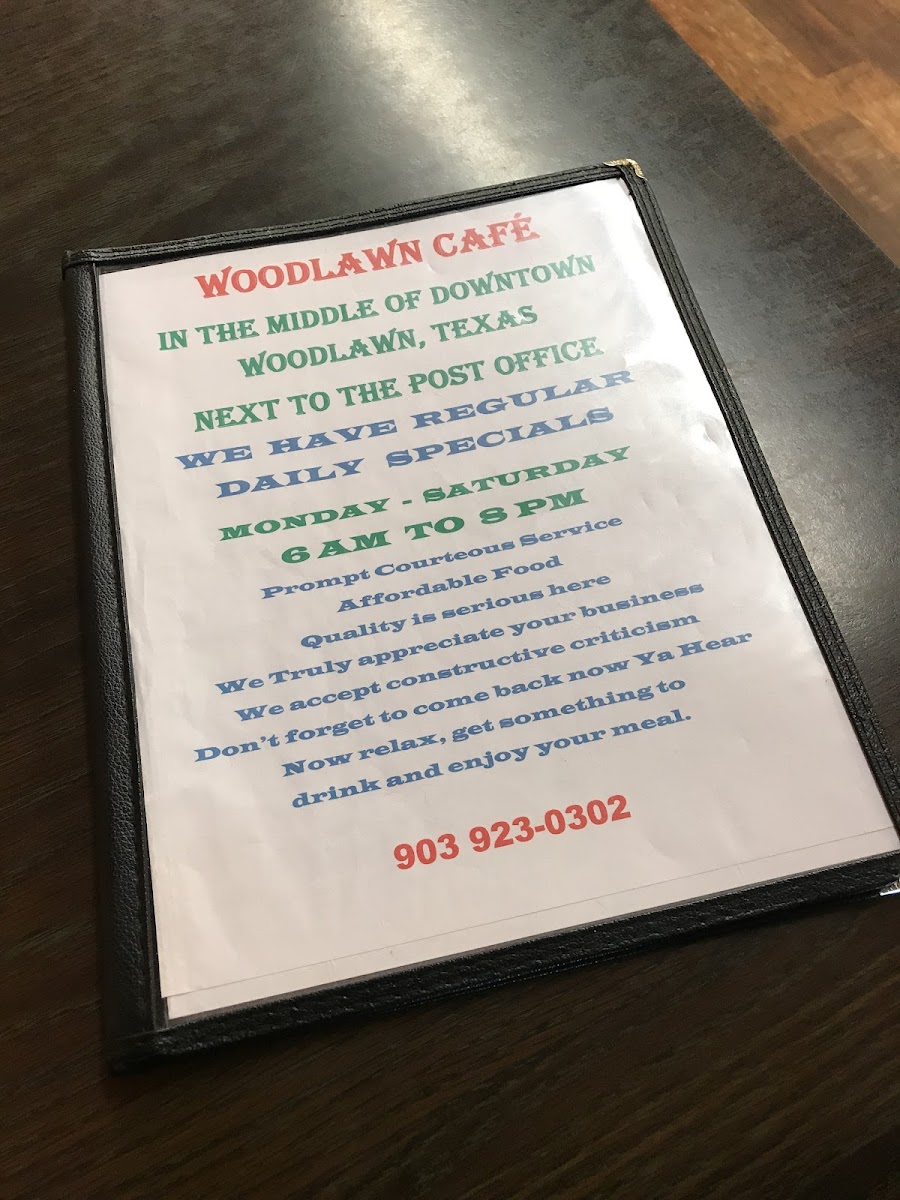 WOODLAWN CAFÉ
IN THE MIDDLE OF DOWNTOWN
WOODLAWN, TEXAS
NEXT TO THE POST OFFICE
WE HAVE REGULAR
DAILY SPECIALS
MONDAY - SATURDAY
6 AM TO 8 PM
Prompt Courteous Service
Affordable Food
Quality is serious here
We Truly appreciate your business
We accept constructive criticism
Don't forget to come back now Ya Hear
Now relax, get something to
drink and enjoy your meal.
903 923-0302